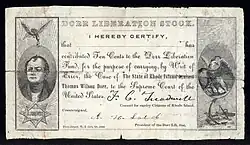 DORR LIBERATION STOCK.
I HEREBY CERTIFY,
that has
contributed Ten Cents to the Dorr Liberation
Fund, for the purpose of carrying, by Writ of
Error, the Case of The State of Rhode Island versus
Thomas Wilson Dorr, to the Supreme Court of the
United States. F. C. Treadwell
Counsel for sundry Citizens of Rhode Island.
Countersigned.
President of the Dorr Lib. Soc.